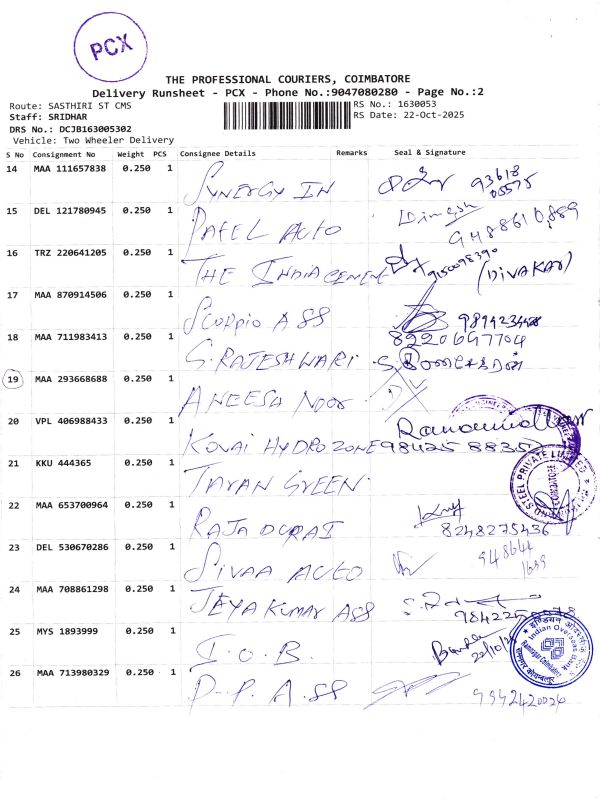 PCX
THE PROFESSIONAL COURIERS, COIMBATORE
Delivery Runsheet - PCX - Phone No.:9047080280 - Page No.:2
Route: SASTHIRI ST CMS
RS No.: 1630053
Staff: SRIDHAR
RS Date: 22-Oct-2025
DRS No.: DCJB163005302
Vehicle: Two Wheeler Delivery
S No Consignment No Weight PCS Consignee Details Remarks Seal & Signature
14 MAA 111657838 0.250 1 SYNERGY IN 93618
15 DEL 121780945 0.250 1 PATEL AUTO Dinesh
16 TRZ 220641205 0.250 1 THE INDIA CEMENT 9150098390 (DIVAKAR)
17 MAA 870914506 0.250 1 SCORPIO ASS
18 MAA 711983413 0.250 1 S. RAJESHWARI 8220647704
19 MAA 293668688 0.250 1 ANEESH NOOR
20 VPL 406988433 0.250 1 KOVAI HYDROZONE
21 KKU 444365 0.250 1 TARAN GREEN
STEEL PRIVATE LIMITED
COIMBATORE
22 MAA 653700964 0.250 1 RAJA DURAI 8248275436
23 DEL 530670286 0.250 1 SIVAA AUTO 948644
24 MAA 708861298 0.250 1 JEYA KUMAR ASS
25 MYS 1893999 0.250 1 I.O.B 22/10/25
Indian Overseas Bank
26 MAA 713980329 0.250 1 P.P. ASS 9942420026